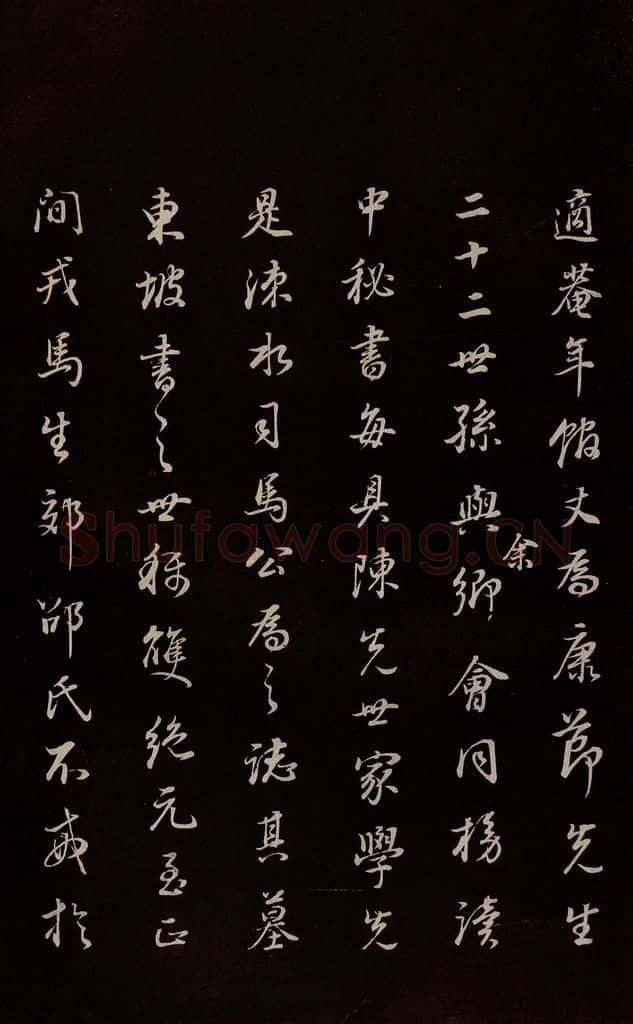 適菴年館丈為康節先生
二十二世孫與余鄉會同榜讀
中秘書每具陳先世家學先
是涑水司馬公為之誌其墓
東坡書之世称雙絶元至正
間戎馬生郊邵氏不戒於
Shufawang.CN